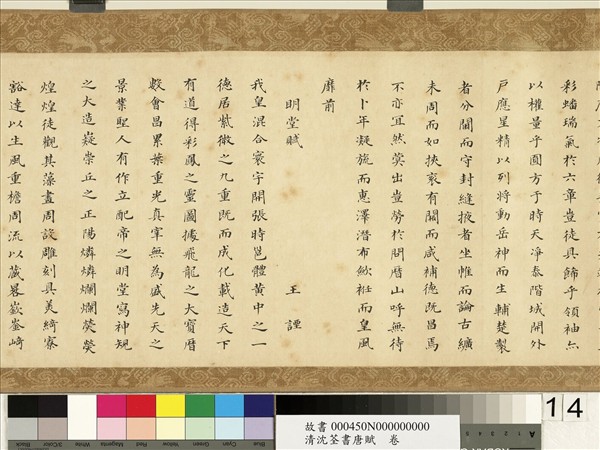 彩蟠瑞氣於六章豈徒具飾乎領袖亦
以權量乎圓方于時天淨泰階城開外
戶應星精以列將動岳神而生輔楚製
者分閫而守封縫掖者坐帷而論古纊
未周而如挾袞有闕而咸補德既昌焉
不亦宜然蓂出豈勞於閏曆山呼無待
於卜年凝旒而惠澤潛布歛袵而皇風
靡前
明堂賦
王諲
我皇混合寰宇開張時邕體黃中之一
德居紫微之九重既而成化載造天下
有道得彩鳳之靈圖據飛龍之大寶曆
數會昌累葉重光真宰無為盛先天之
景業聖人有作立配帝之明堂寫神規
之大造嶷崇丘之正陽燐燐爛爛熒熒
煌煌徒觀其藻畫周設雕刻具美綺寮
豁達以生風重檐周流以藏晷嶔崟崎
Black
3/Color
White
Magenta
Red
Yellow
Green
Cyan
Blue
故書 000450N000000000
清沈荃書唐賦 卷
A
14